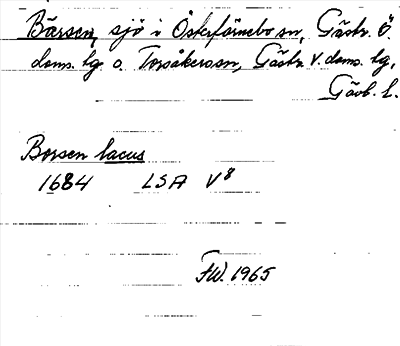 Bärsen, sjö i Österfärnebo sn, Gästr. Ö.
doms. lg o. Torsåker sn, Gästr. V. doms. lg,
Gävb. l.
Borsen lacus
1684 LSA V⁸
FW. 1965